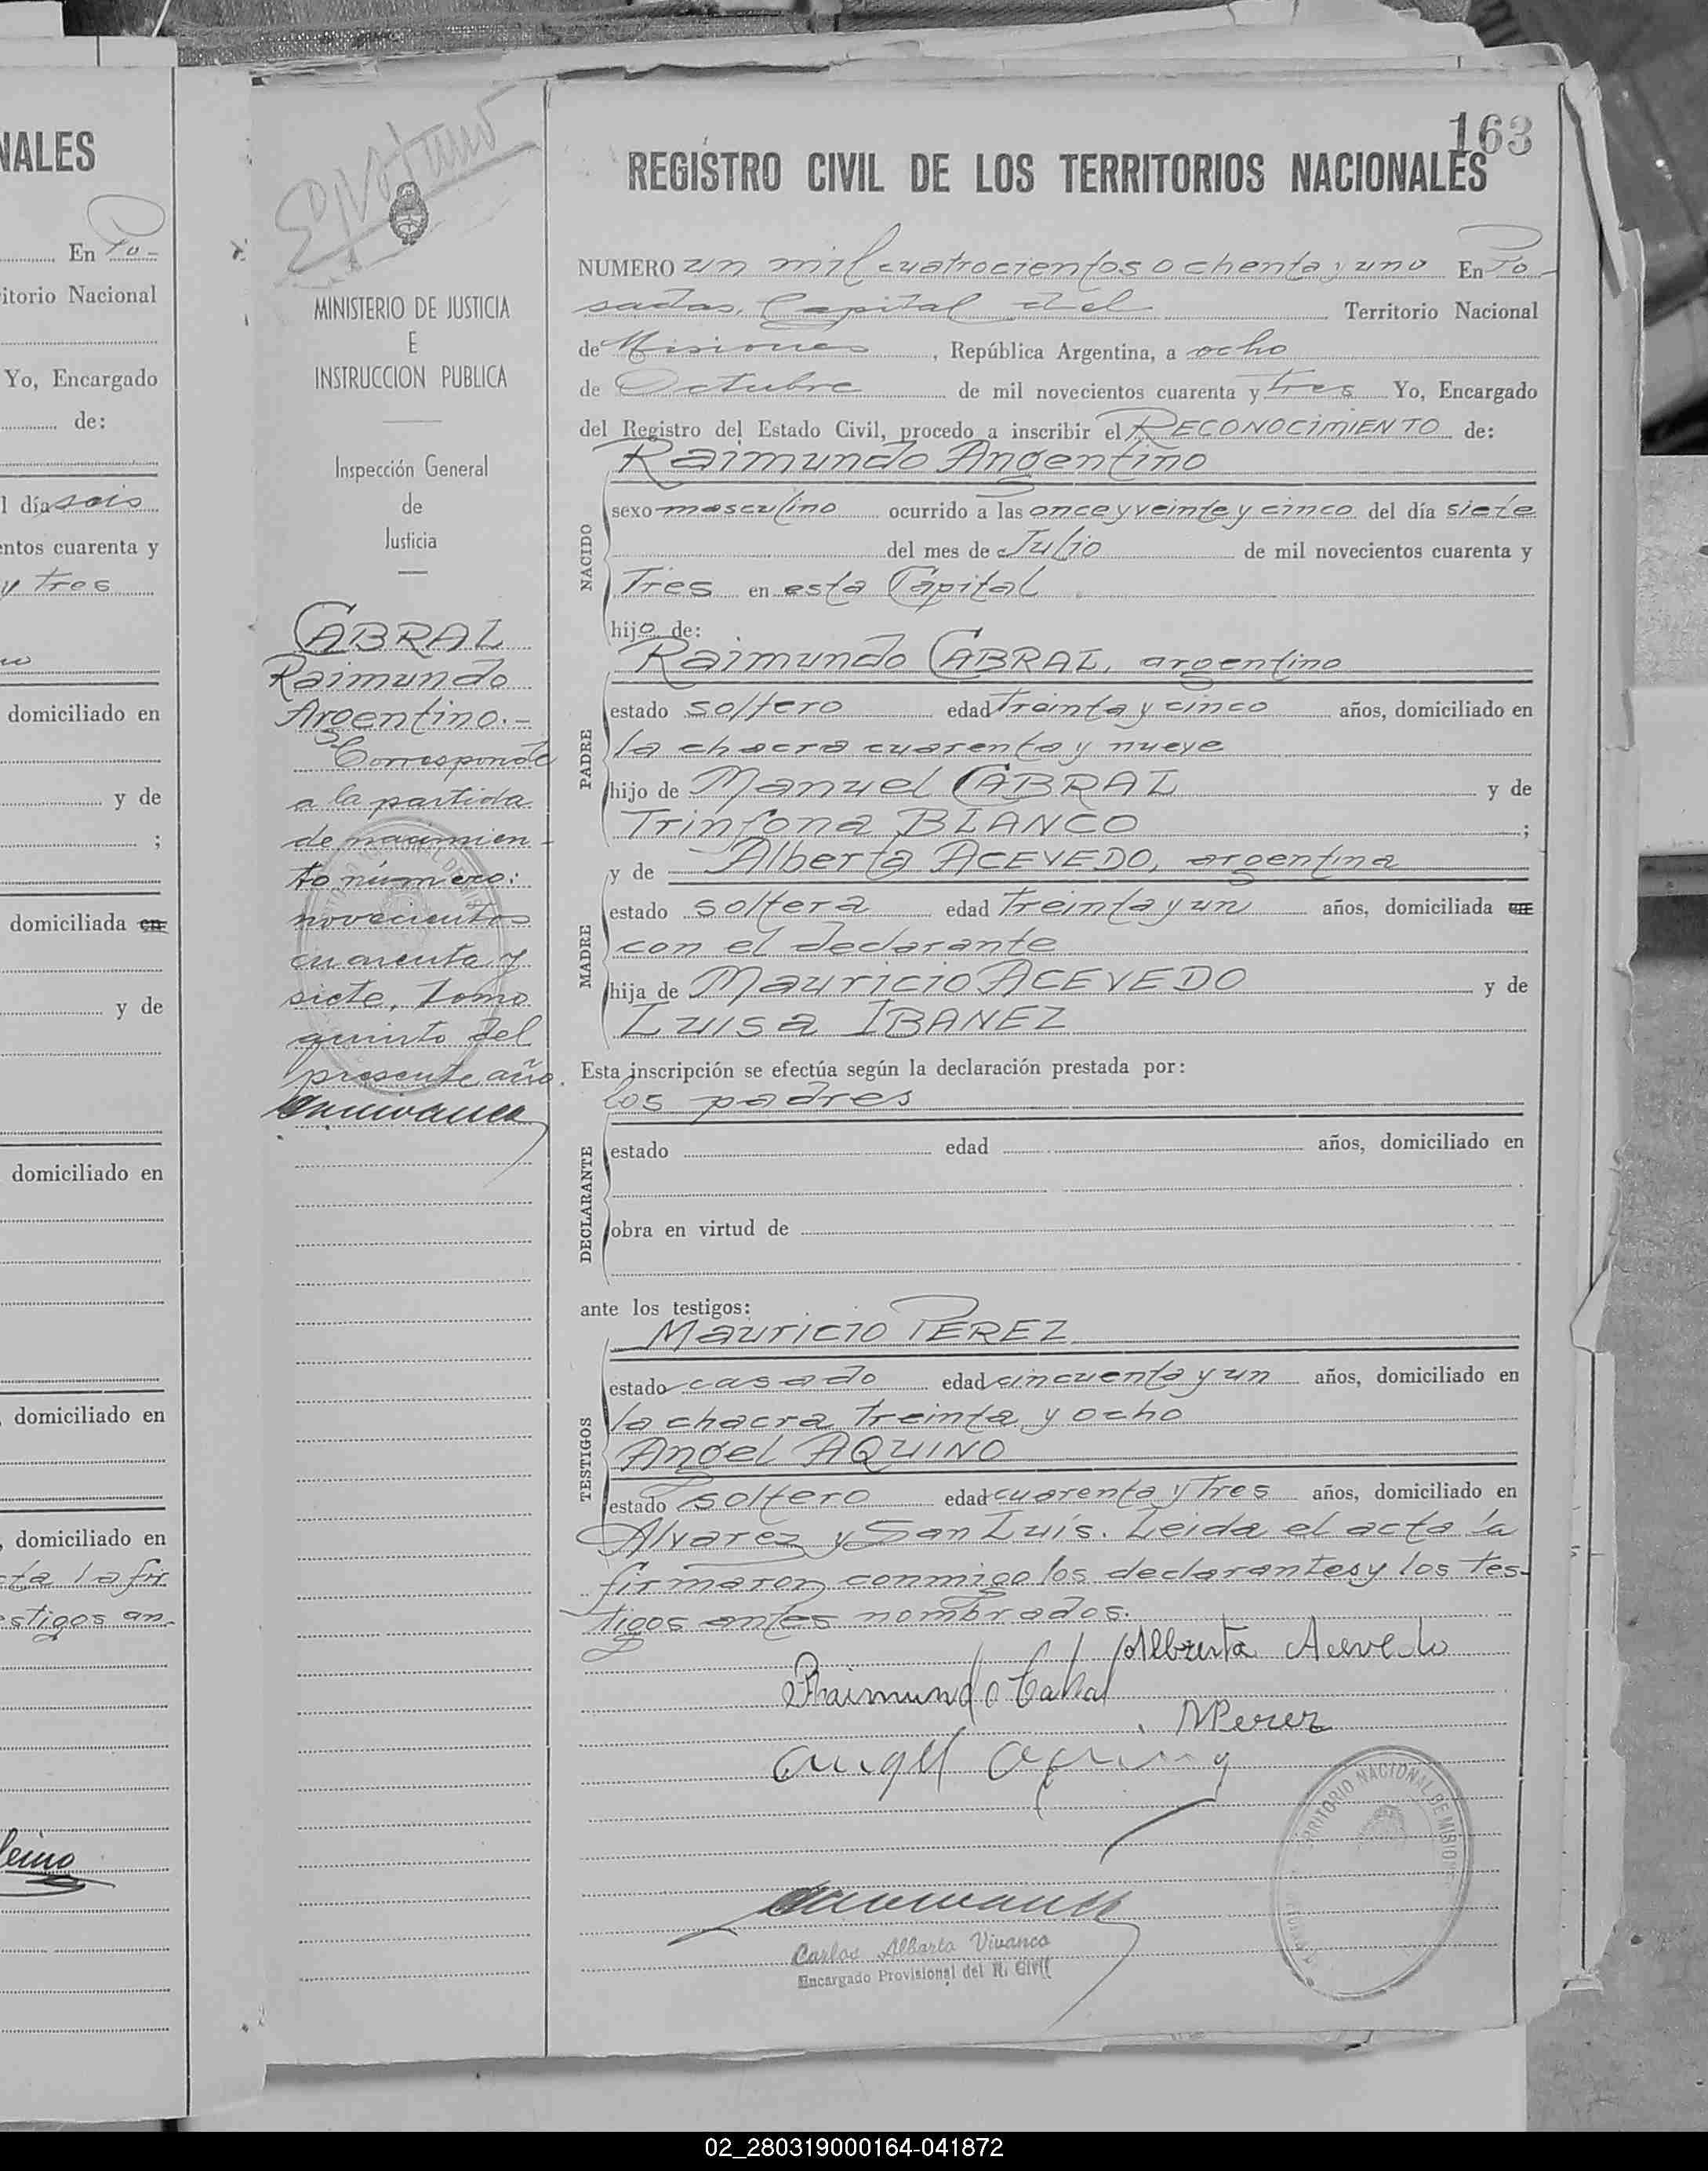 NALES
En Po-
itorio Nacional
Yo, Encargado
de:
l día seis
entos cuarenta y
y tres
domiciliado en
y de
;
domiciliada en
y de
domiciliado en
domiciliado en
domiciliado en
cta la fir
estigos an-
163
REGISTRO CIVIL DE LOS TERRITORIOS NACIONALES
MINISTERIO DE JUSTICIA
E
INSTRUCCION PUBLICA
Inspección General
de
Justicia
CABRAL
Raimundo
Argentino.-
Corresponde
a la partida
de nacimien-
to número:
novecientos
cuarenta y
siete, tomo
quinto del
presente año.
NUMERO un mil cuatrocientos ochenta y uno En Po-
sadas, Capital del Territorio Nacional
de Misiones, República Argentina, a ocho
de Octubre de mil novecientos cuarenta y tres Yo, Encargado
del Registro del Estado Civil, procedo a inscribir el RECONOCIMIENTO de:
Raimundo Argentino
NACIDO
sexo masculino ocurrido a las once y veinte y cinco del día siete
del mes de Julio de mil novecientos cuarenta y
Tres en esta Capital
hijo de:
Raimundo CABRAL, argentino
PADRE
estado soltero edad Treinta y cinco años, domiciliado en
la chacra cuarenta y nueve
hijo de Manuel CABRAL y de
Trinfona BLANCO ;
y de Alberta ACEVEDO, argentina
MADRE
estado soltera edad Treinta y un años, domiciliada en
con el declarante
hija de Mauricio ACEVEDO y de
Luisa IBANEZ
Esta inscripción se efectúa según la declaración prestada por:
los padres
DECLARANTE
estado edad años, domiciliado en
obra en virtud de
ante los testigos:
Mauricio PEREZ
TESTIGOS
estado casado edad cincuenta y un años, domiciliado en
la chacra Treinta y ocho
Angel AQUINO
estado soltero edad cuarenta y Tres años, domiciliado en
Alvarez y San Luís. Leida el acta la
firmaron conmigo los declarantes y los tes-
tigos antes nombrados.
Alberta Acevedo
Raimundo Cabral
MPerez
Angel Aquino
TERRITORIO NACIONAL DE MISIONES
Carlos Alberto Vivanco
Encargado Provisional del R. Civil
02_280319000164-041872